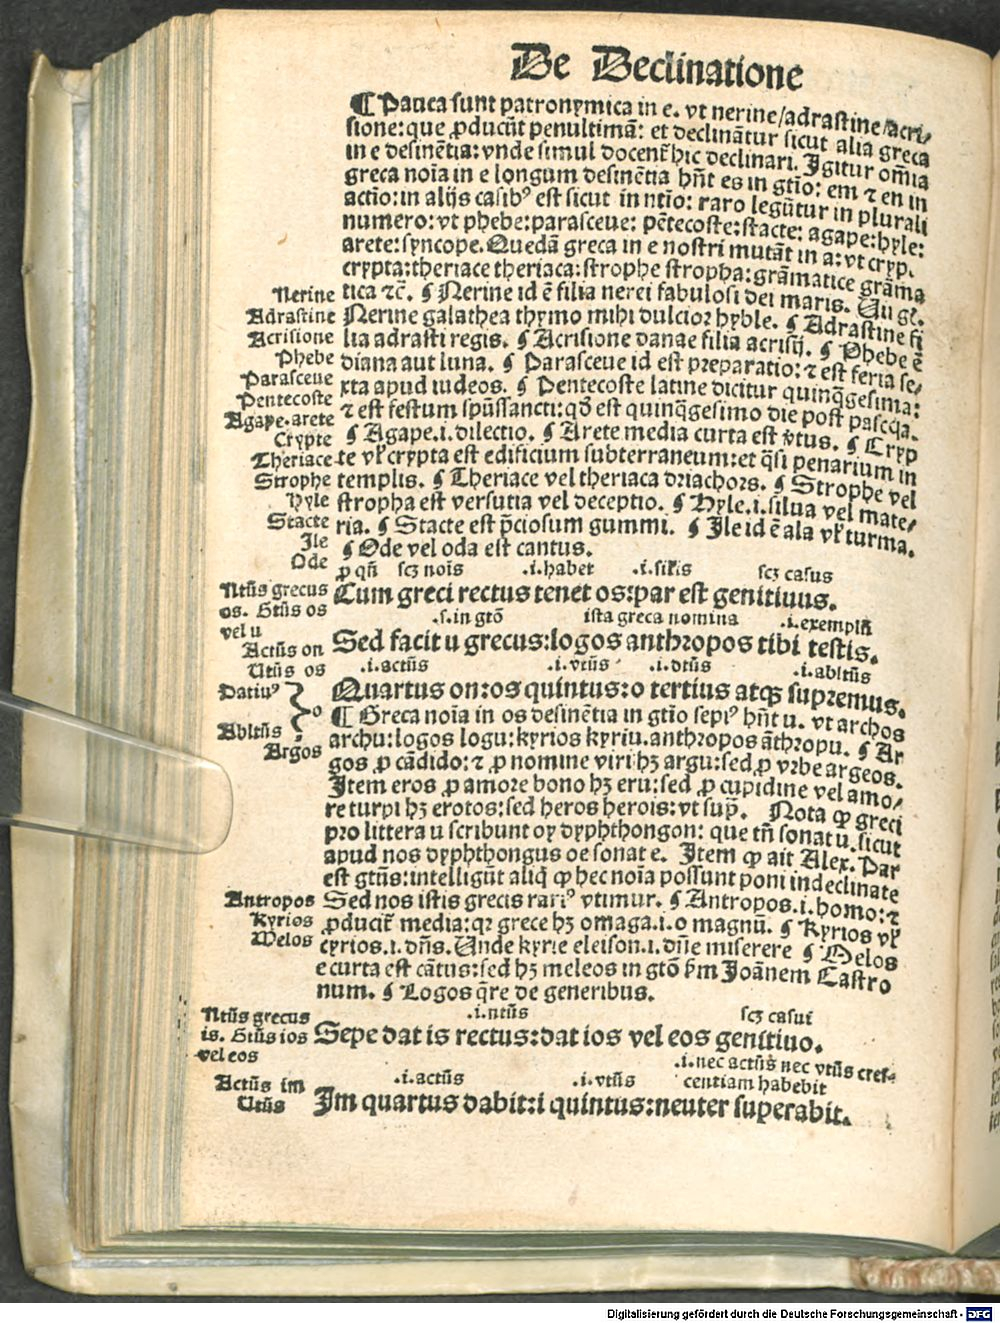 De Declinatione
¶ Pauca sunt patronymica in e. vt nerine/adrastine/acri/
sione: que ꝓducūt penultimā: et declinātur sicut alia greca
in e desinētia: vnde simul docent̄ hic declinari. Igitur om̄ia
greca noīa in e longum desinētia hn̄t es in gtīo: em ⁊ en in
actīo: in alijs casibꝰ est sicut in ntīo: raro legūtur in plurali
numero: vt phebe: parasceue: pētecoste: stacte: agape: hyle:
arete: syncope. Quedā greca in e nostri mutāt in a: vt cryp.
crypta: theriace theriaca: strophe stropha: grāmatice grāma
Nerine tica ⁊c̄. ¶ Nerine id ē filia nerei fabulosi dei maris. Vn̄ gl.
Adrastine Nerine galathea thymo mihi dulcioꝛ hyble. ¶ Adrastine fi
Acrisione lia adrasti regis. ¶ Acrisione danae filia acrisij. ¶ Phebe ē
Phebe diana aut luna. ¶ Parasceue id est pꝛeparatio: ⁊ est feria se/
Parasceue xta apud iudeos. ¶ Pentecoste latine dicitur quinq̄gesima:
Pentecoste ⁊ est festum spūssancti: qd̄ est quinq̄gesimo die post pascq̄a.
Agape. arete ¶ Agape .i. dilectio. ¶ Arete media curta est v̄tus. ¶ Cryp
Crypte te vl̓ crypta est edificium subterraneum: et q̄si penarium in
Theriace templis. ¶ Theriace vel theriaca dꝛiachoꝛs. ¶ Strophe vel
Strophe stropha est versutia vel deceptio. ¶ Hyle .i. silua vel mate/
Hyle ria. ¶ Stacte est p̄ciosum gummi. ¶ Ile id ē ala vl̓ turma.
Stacte
Ile
Ode ¶ Ode vel oda est cantus.
ꝓ qn̄ scꝫ noīs .i. habet scꝫ casus
Ntūs grecus Cum greci rectus tenet os: par est genitiuus.
os. Gtūs os .s. in gtō ista greca nomina .i. exemplū
vel u Sed facit u grecus: logos anthropos tibi testis.
Actūs on .i. actūs .i. vtūs .i. dtūs .i. abltūs
Utūs os Quartus on: os quintus: o tertius atqꝫ supremus.
Datiuꝰ
o
Abltūs
¶ Greca noīa in os desinētia in gtīo sepiꝰ hn̄t u. vt archos
archu: logos logu: kyrios kyriu. anthropos āthropu. ¶ Ar
Argos gos ꝓ cādido: ⁊ ꝓ nomine viri hꝫ argu: sed ꝓ vꝛbe argeos.
Item eros ꝓ amore bono hꝫ eru: sed ꝓ cupidine vel amo/
re turpi hꝫ erotos: sed heros herois: vt sup̄. Nota ꝙ greci
pro littera u scribunt oy dyphthongon: que tn̄ sonat u. sicut
apud nos dyphthongus oe sonat e. Item ꝙ ait Alex. Par
est gtūs: intelligūt aliq̄ ꝙ hec noīa possunt poni indeclinate
Antropos Sed nos istis grecis rariꝰ vtimur. ¶ Antropos .i. homo: ⁊
Kyrios ꝓducit̄ media: qꝛ grece hꝫ omaga .i. o magnū. ¶ Kyrios vl̓
Melos cyrios .i. dn̄s. Unde kyrie eleison .i. dn̄e miserere ¶ Melos
e curta est cātus: sed hꝫ meleos in gtō Joānem Castro
num. ¶ Logos q̄re de generibus.
.i. ntūs scꝫ casui
Ntūs grecus Sepe dat is rectus: dat ios vel eos genitiuo.
is. Gtūs ios
vel eos .i. nec actūs nec vtūs cres-
Actūs im .i. actūs .i. vtūs centiam habebit
Utūs Im quartus dabit: i quintus: neuter superabit.
Digitalisierung gefördert durch die Deutsche Forschungsgemeinschaft - DFG